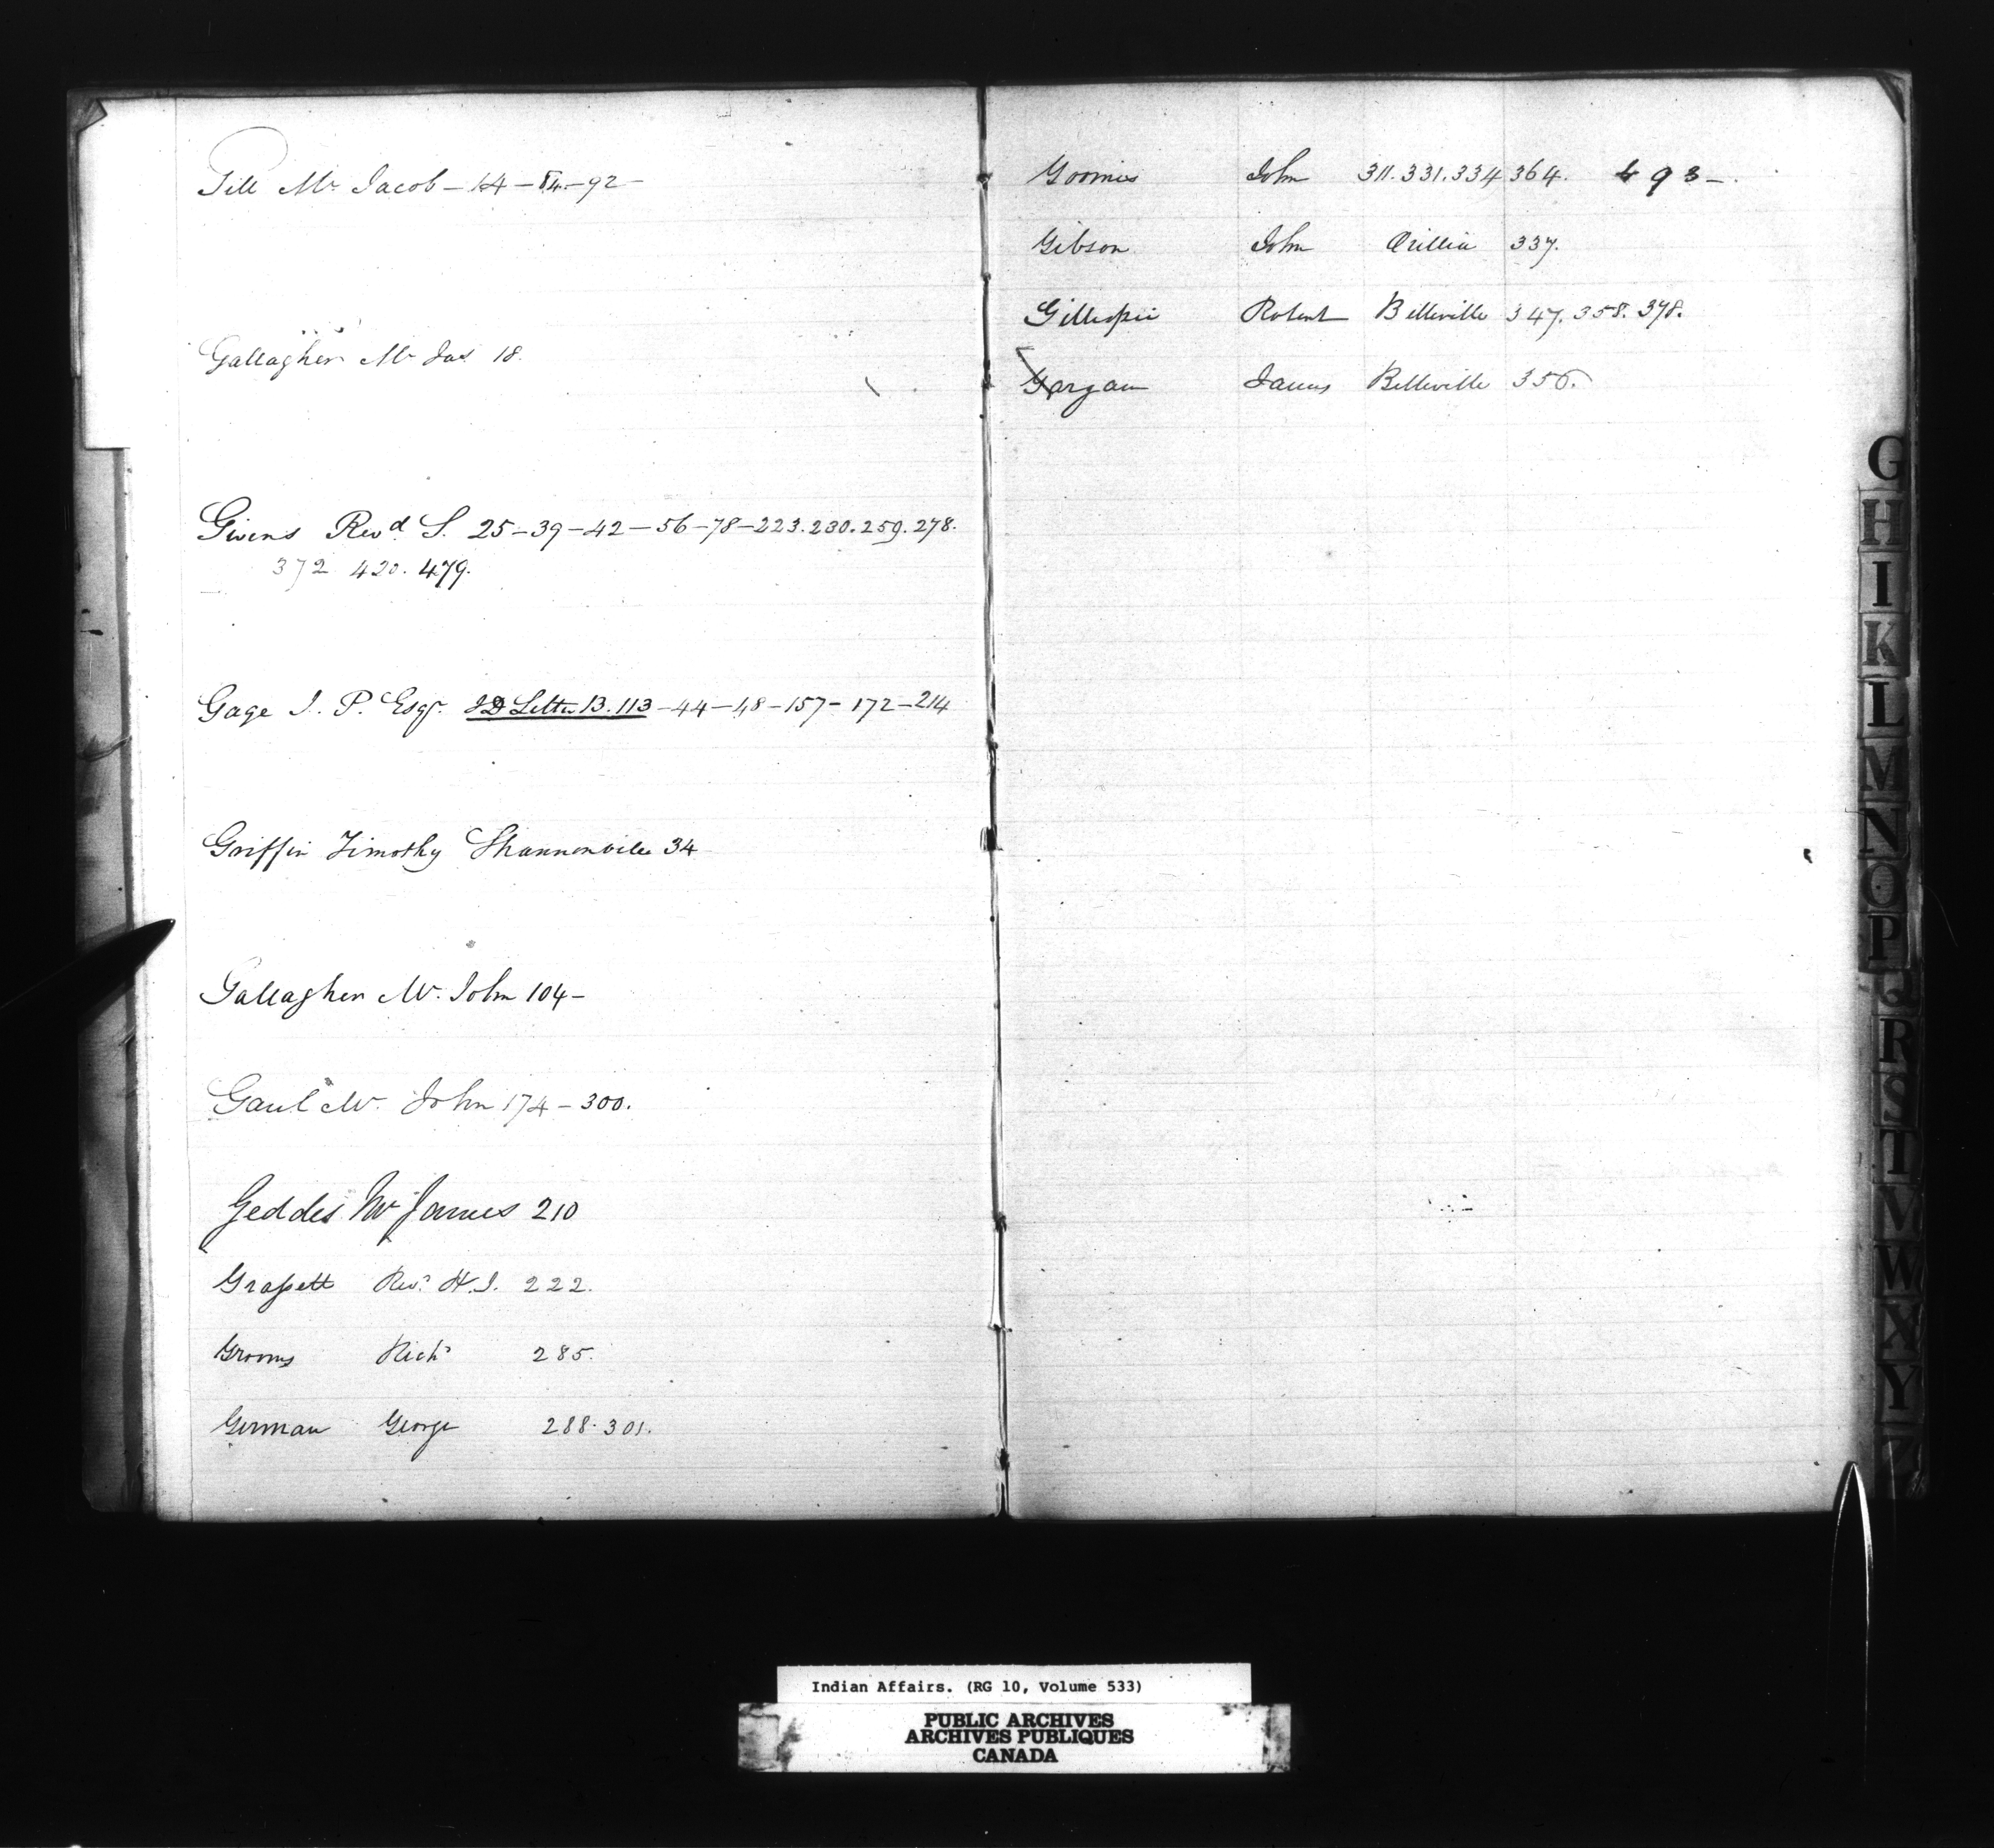 Gill Mr Jacob - 14 - 84 - 92 -
Gallagher Mr Jas 18.
Givens Revd. S. 25 - 39 - 42 - 56 - 78 - 223. 230. 259. 278.
372 420. 479.
Gage J. P. Esqr. Letter B. 113 - 44 - 48 - 157 - 172 - 214
Griffin Timothy Shannonville 34
Gallagher Mr. John 104 -
Gaul Mr. John 174 - 300.
Geddes Mr James 210
Grassett Revd. H. J. 222.
Grooms Richd 285.
German George 288. 301.
Goomis John 311. 331. 334 364. 493 -
Gibson John Orillia 337.
Gillespie Robert Belleville 347. 358. 378.
Gargan James Belleville 356.
G
H
I
K
L
M
N
O
P
Q
R
S
T
V
W
X
Y
Z
Indian Affairs. (RG 10, Volume 533)
PUBLIC ARCHIVES
ARCHIVES PUBLIQUES
CANADA